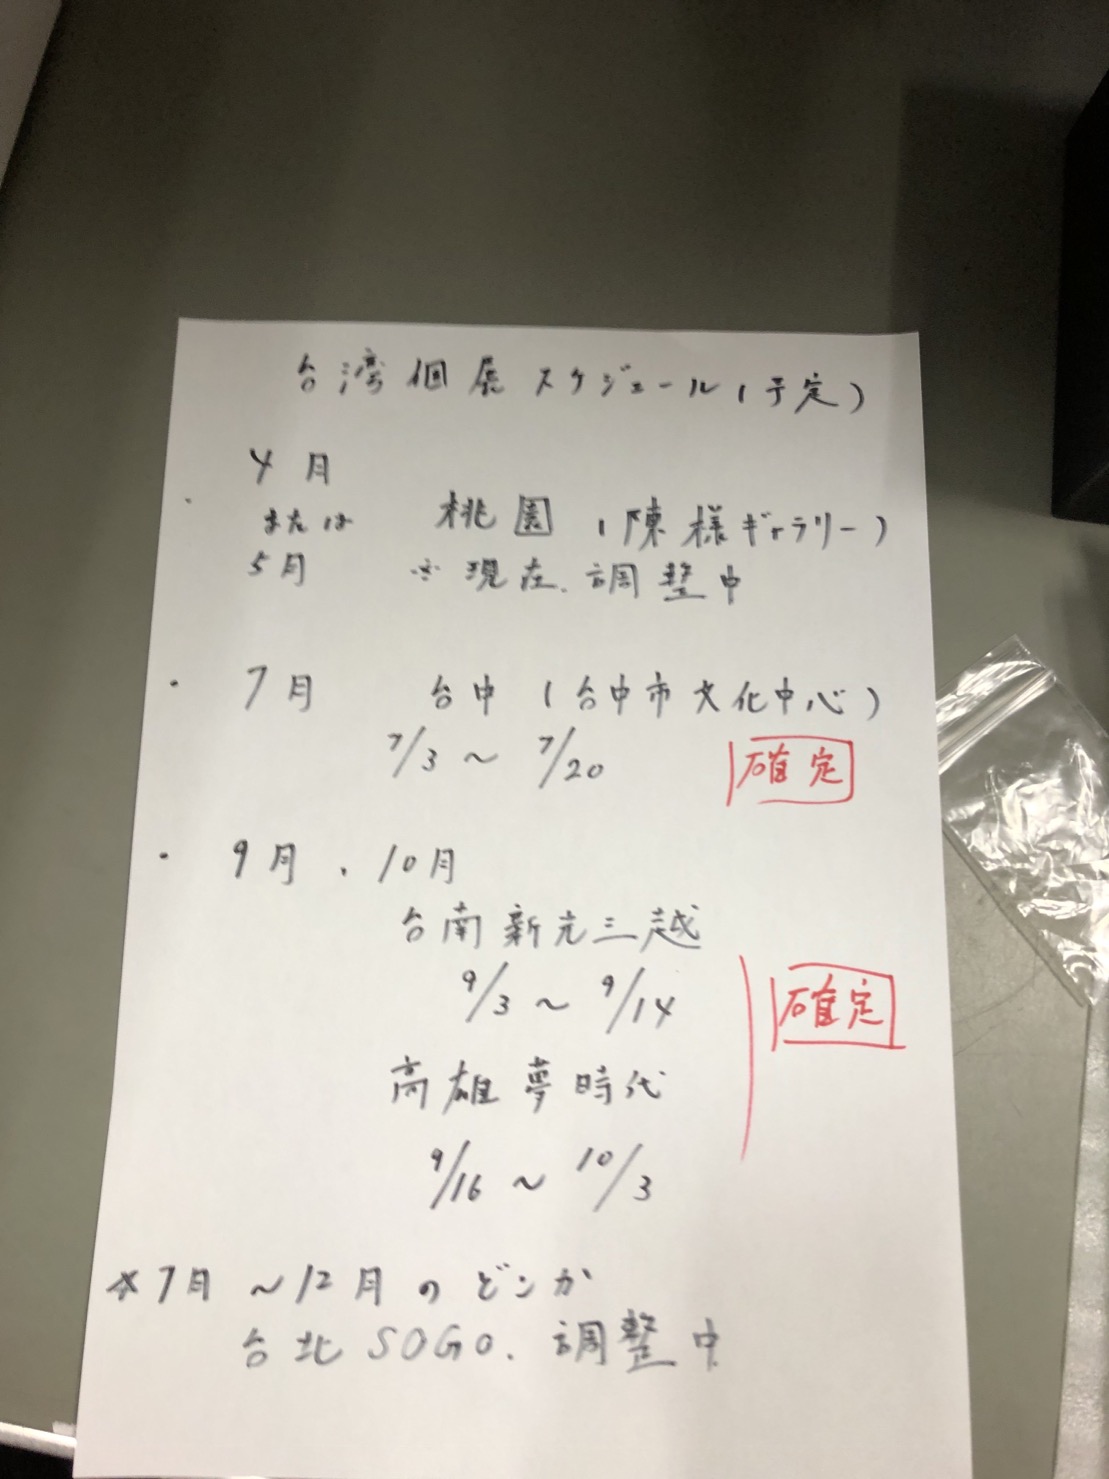 台湾個展スケジュール(予定)
4月
または 桃園 (陳様ギャラリー)
5月 ※現在、調整中
・ 7月 台中 (台中市文化中心)
7/3 ~ 7/20 確定
・ 9月、10月
台南新光三越
9/3 ~ 9/14 確定
高雄夢時代
9/16 ~ 10/3
※7月~12月のどこか
台北SOGO、調整中